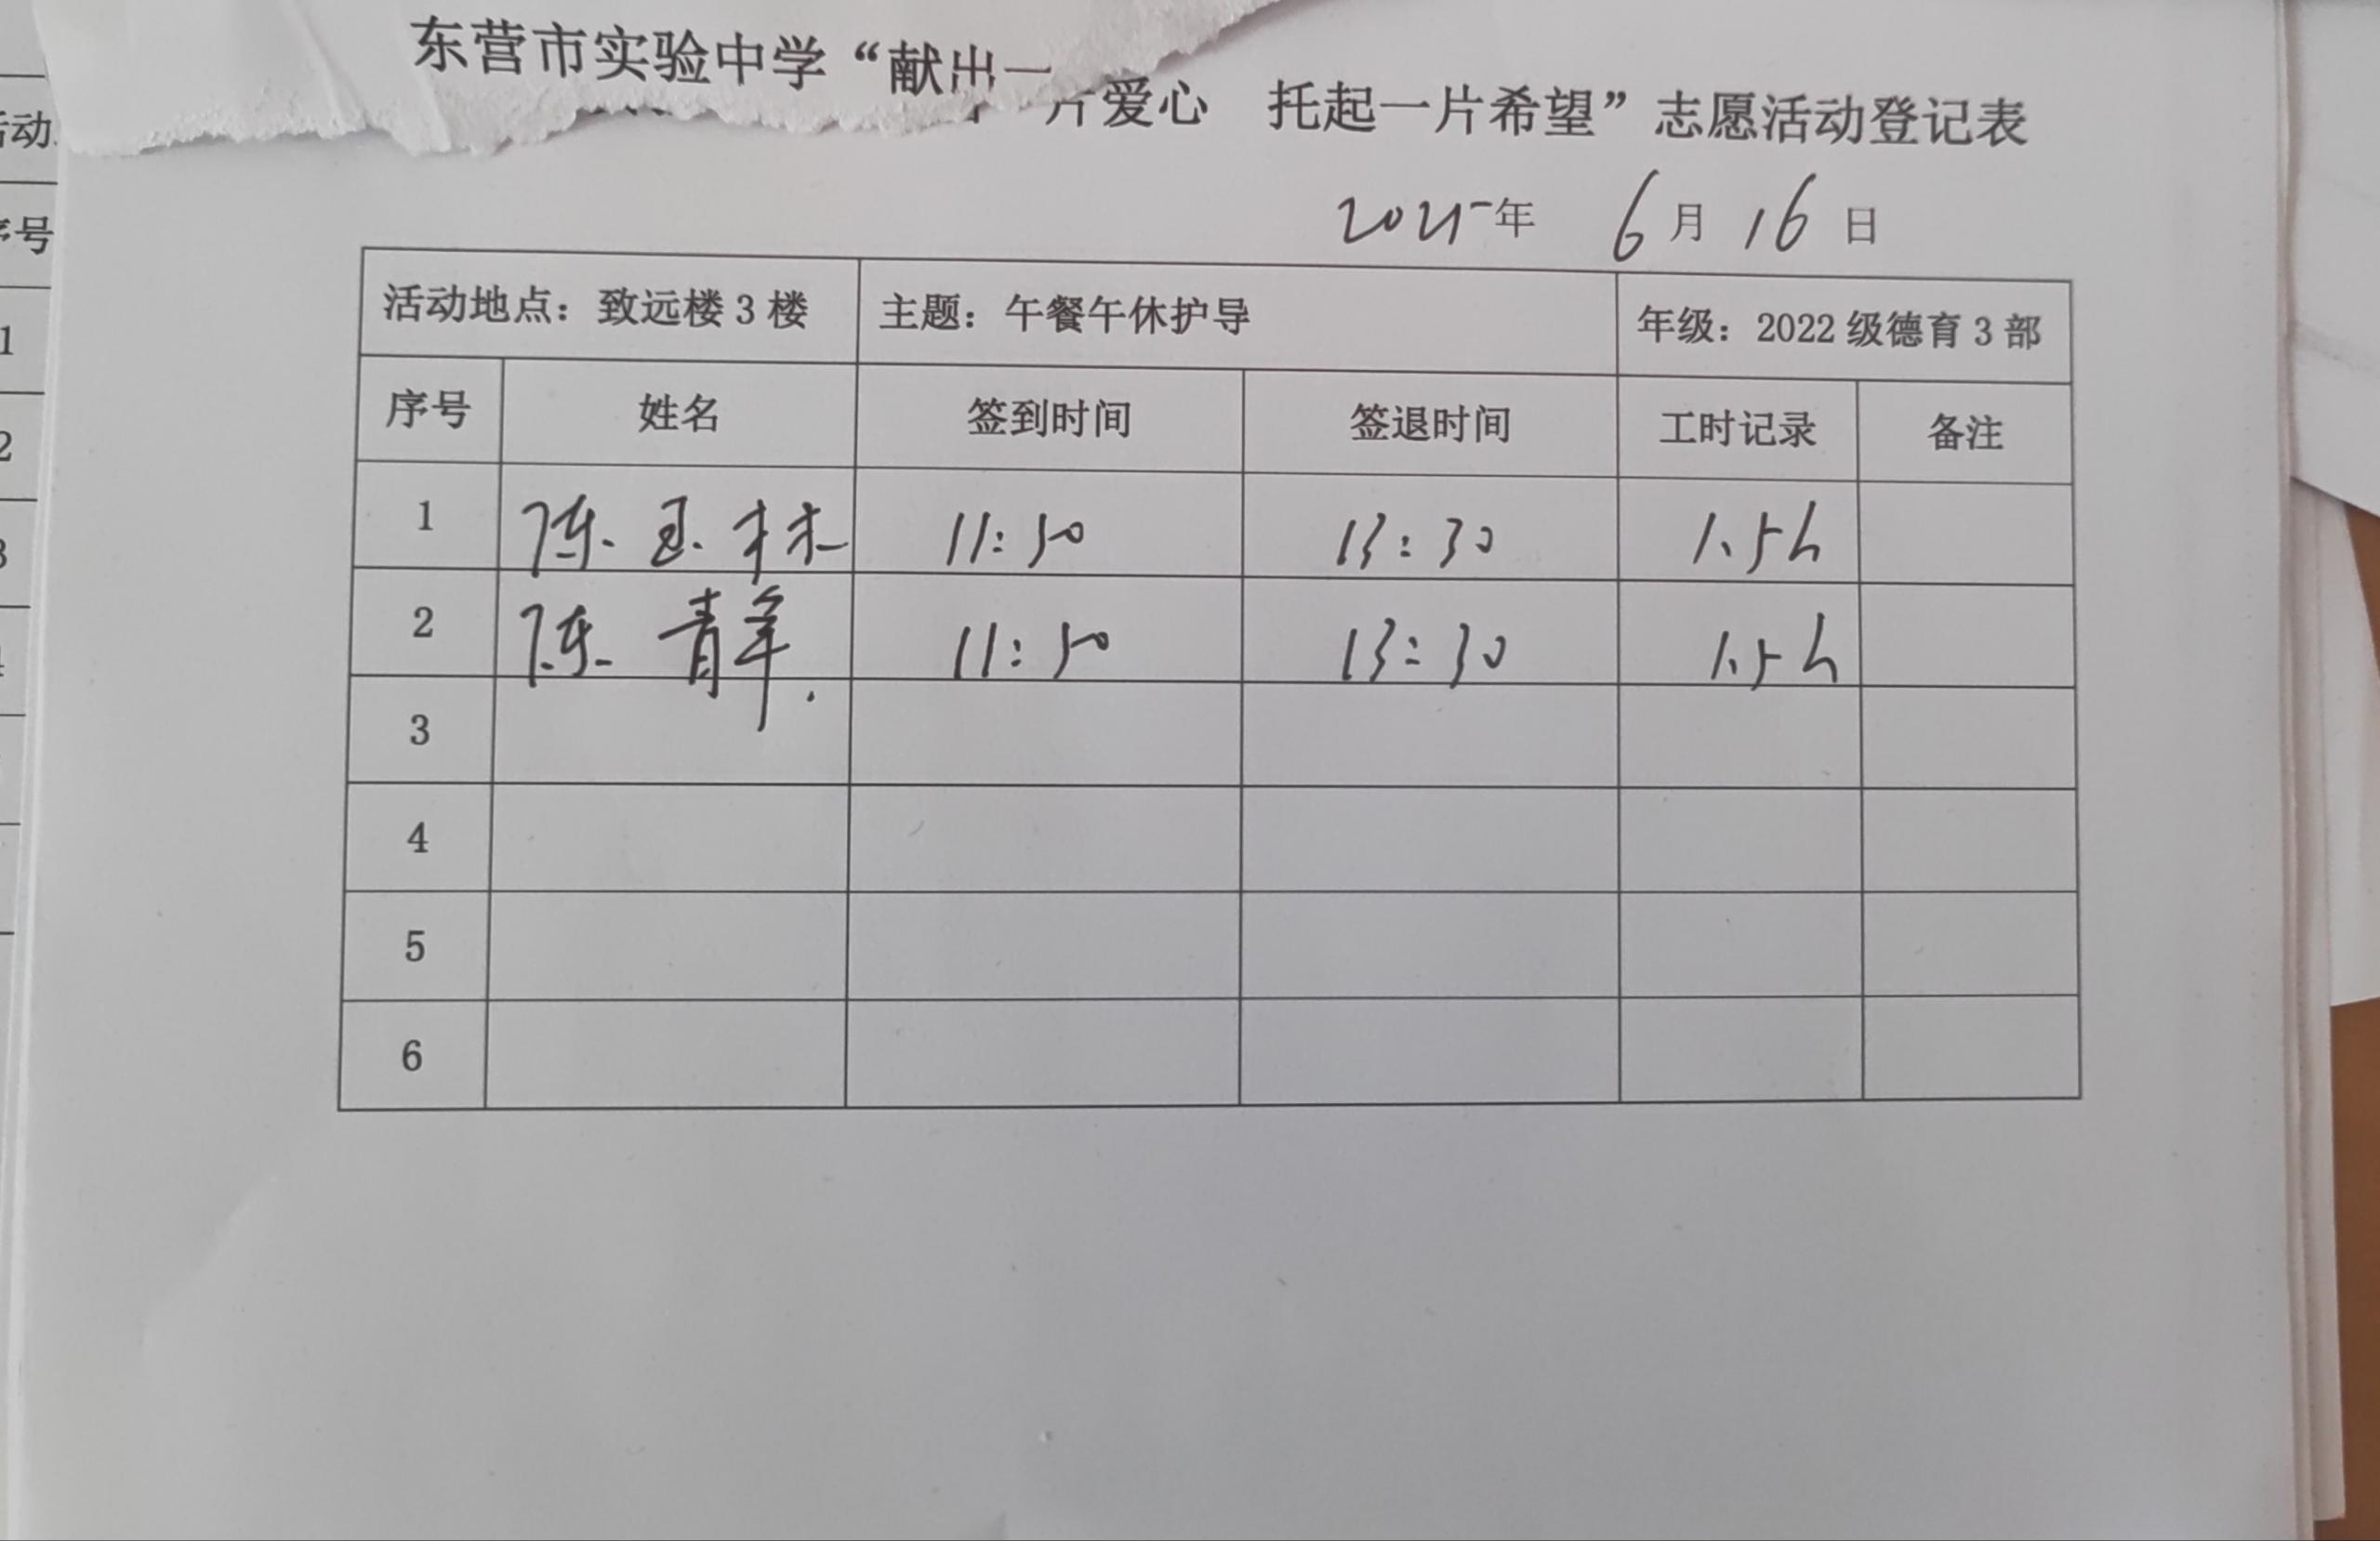 东营市实验中学“献出一
片爱心 托起一片希望”志愿活动登记表
2025年 6月16日
活动地点：致远楼3楼 主题：午餐午休护导 年级：2022级德育3部
序号 姓名 签到时间 签退时间 工时记录 备注
1 陈玉林 11:50 13:30 1.5h
2 陈青 11:50 13:30 1.5h
3
4
5
6
动
号
1
2